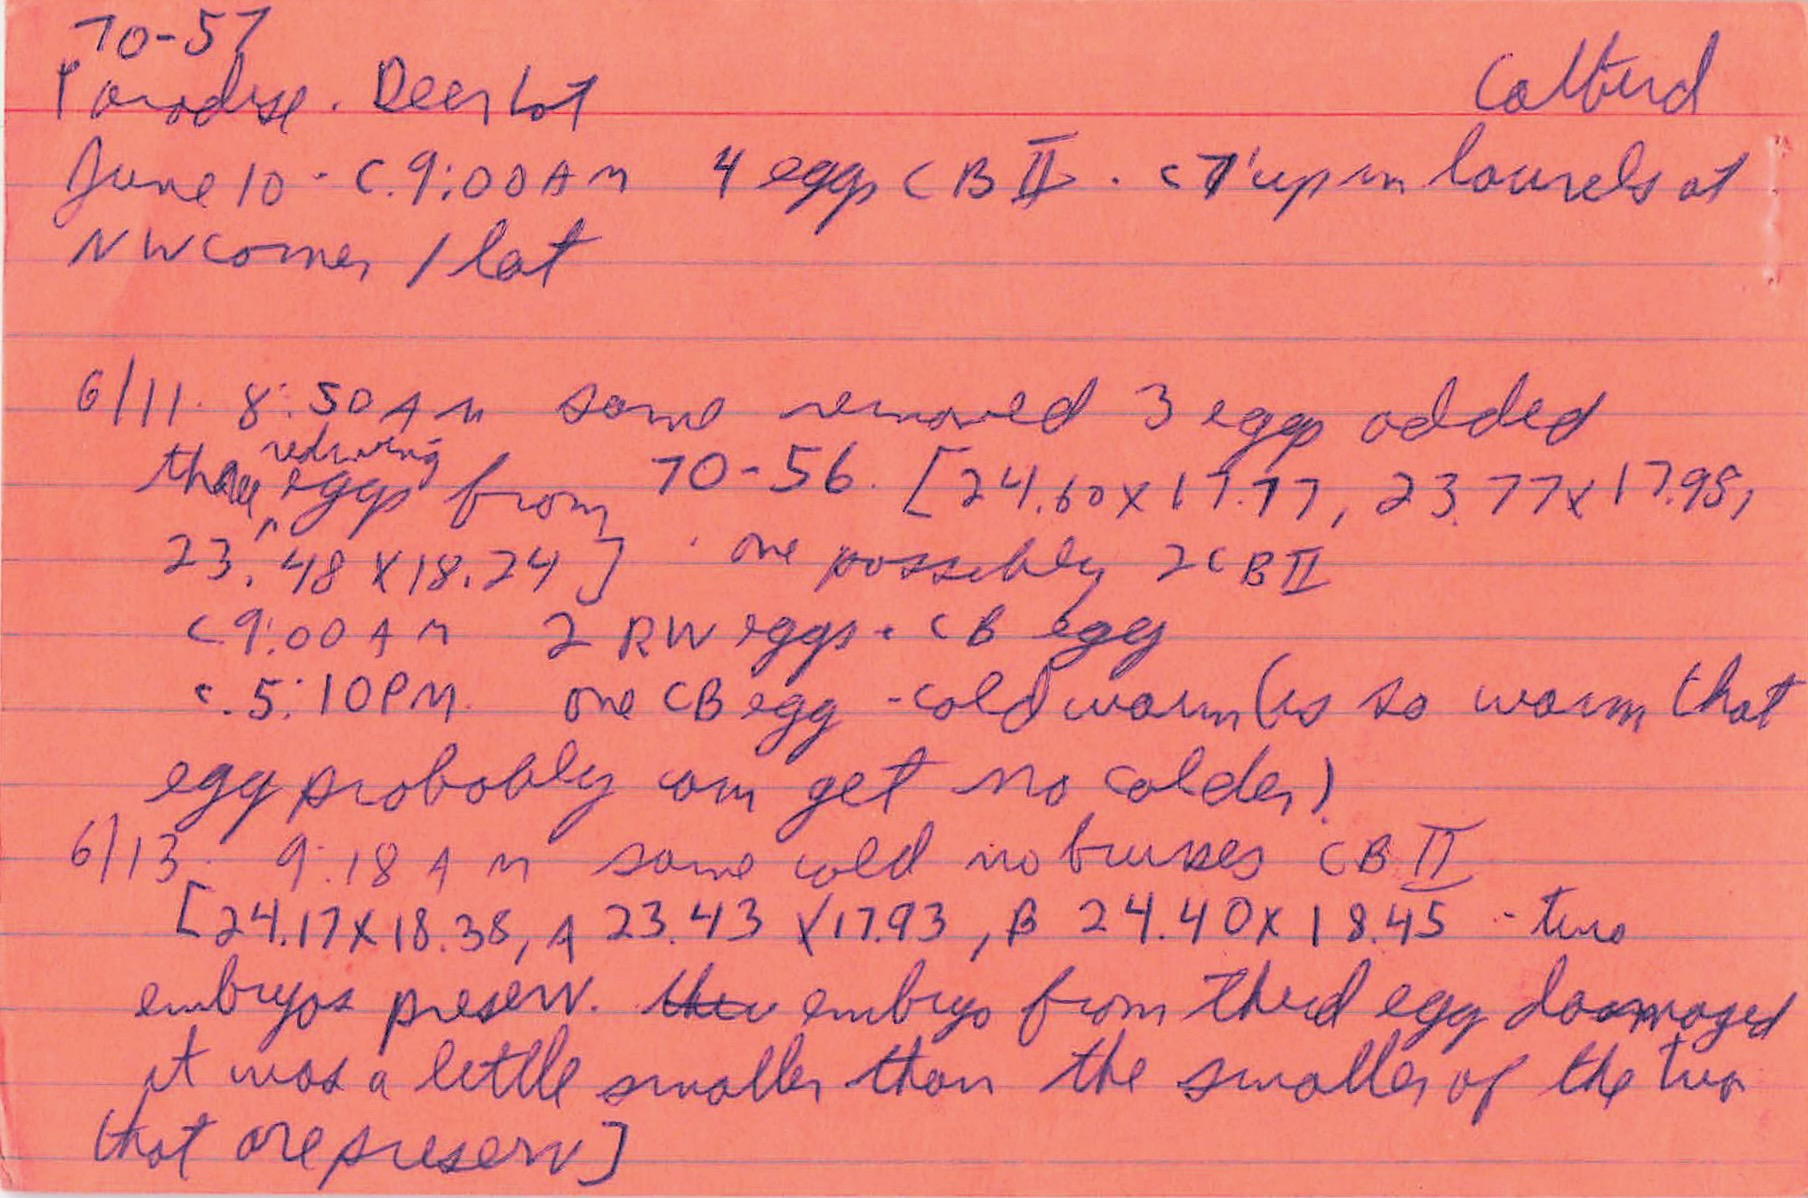 70-57
Paradise. Deer Lot Catbird
June 10 - c. 9:00 AM 4 eggs CB II. c 7' up in laurels at
NW corner / lot
6/11. 8:50 AM same removed 3 eggs added
three redwing eggs from 70-56. [24.60 x 17.77, 23.77 x 17.95,
23.48 x 18.24] . one possibly 2 CB II
c 9:00 AM 2 RW eggs. CB egg
c. 5:10 PM. one CB egg - cold warm (is so warm that
egg probably can get no colder)
6/13. 9:18 AM same cold no bruises CB II
[24.17 x 18.38, A 23.43 x 17.93, B 24.40 x 18.45 - two
embryos preserv. embryo from third egg damaged
it was a little smaller than the smaller of the two
that are preserv]